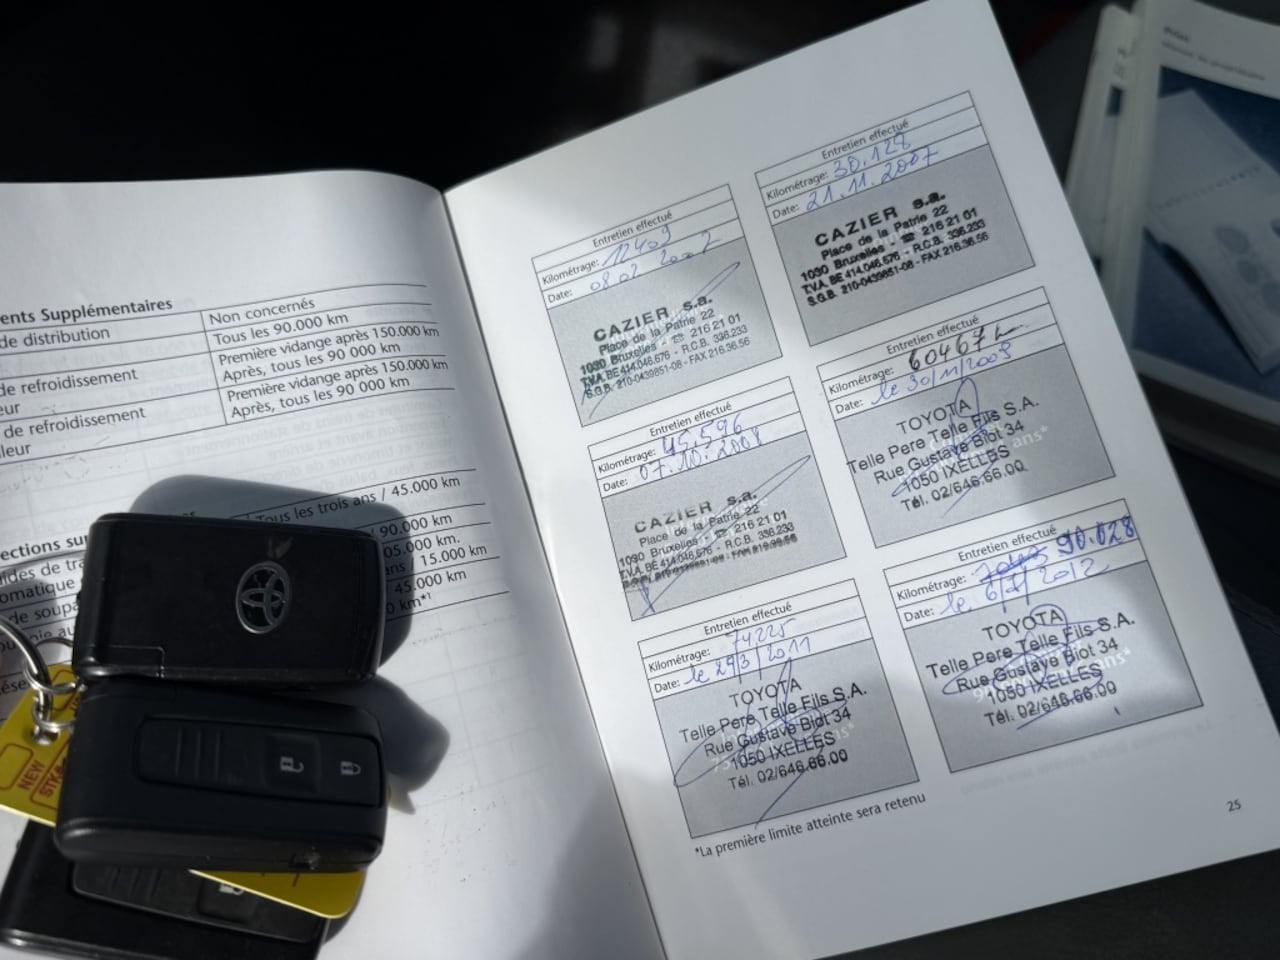 ents Supplémentaires
de distribution
Non concernés
Tous les 90.000 km
de refroidissement
eur
Première vidange après 150.000 km
Après, tous les 90 000 km
de refroidissement
leur
Première vidange après 150.000 km
Après, tous les 90 000 km
Tous les trois ans / 45.000 km
ections su
90.000 km
05.000 km.
ans / 15.000 km
45.000 km
NEW
Entretien effectué
Kilométrage: 12409
Date: 08.02.2007
CAZIER s.a.
Place de la Patrie 22
1030 Bruxelles - ☎ 216 21 01
T.V.A. BE 414.046.576 - R.C.B. 336.233
S.G.B. 210-0439851-08 - FAX 216.36.56
Entretien effectué
Kilométrage: 30.128
Date: 21.11.2007
CAZIER s.a.
Place de la Patrie 22
1030 Bruxelles - ☎ 216 21 01
T.V.A. BE 414.046.576 - R.C.B. 336.233
S.G.B. 210-0439851-08 - FAX 216.36.56
Entretien effectué
Kilométrage: 45.596
Date: 07.10.2008
CAZIER s.a.
Place de la Patrie 22
1030 Bruxelles - ☎ 216 21 01
T.V.A. BE 414.046.576 - R.C.B. 336.233
Entretien effectué
Kilométrage: 60467
Date: le 30/11/2009
TOYOTA
Telle Pere Telle Fils S.A.
Rue Gustave Biot 34
1050 IXELLES
Tél. 02/646.66.00
Entretien effectué
Kilométrage: 74225
Date: le 29/3/2011
TOYOTA
Telle Pere Telle Fils S.A.
Rue Gustave Biot 34
1050 IXELLES
Tél. 02/646.66.00
Entretien effectué
Kilométrage: 90.028
Date: le 6/7/2012
TOYOTA
Telle Pere Telle Fils S.A.
Rue Gustave Biot 34
1050 IXELLES
Tél. 02/646.66.00
*La première limite atteinte sera retenu
25